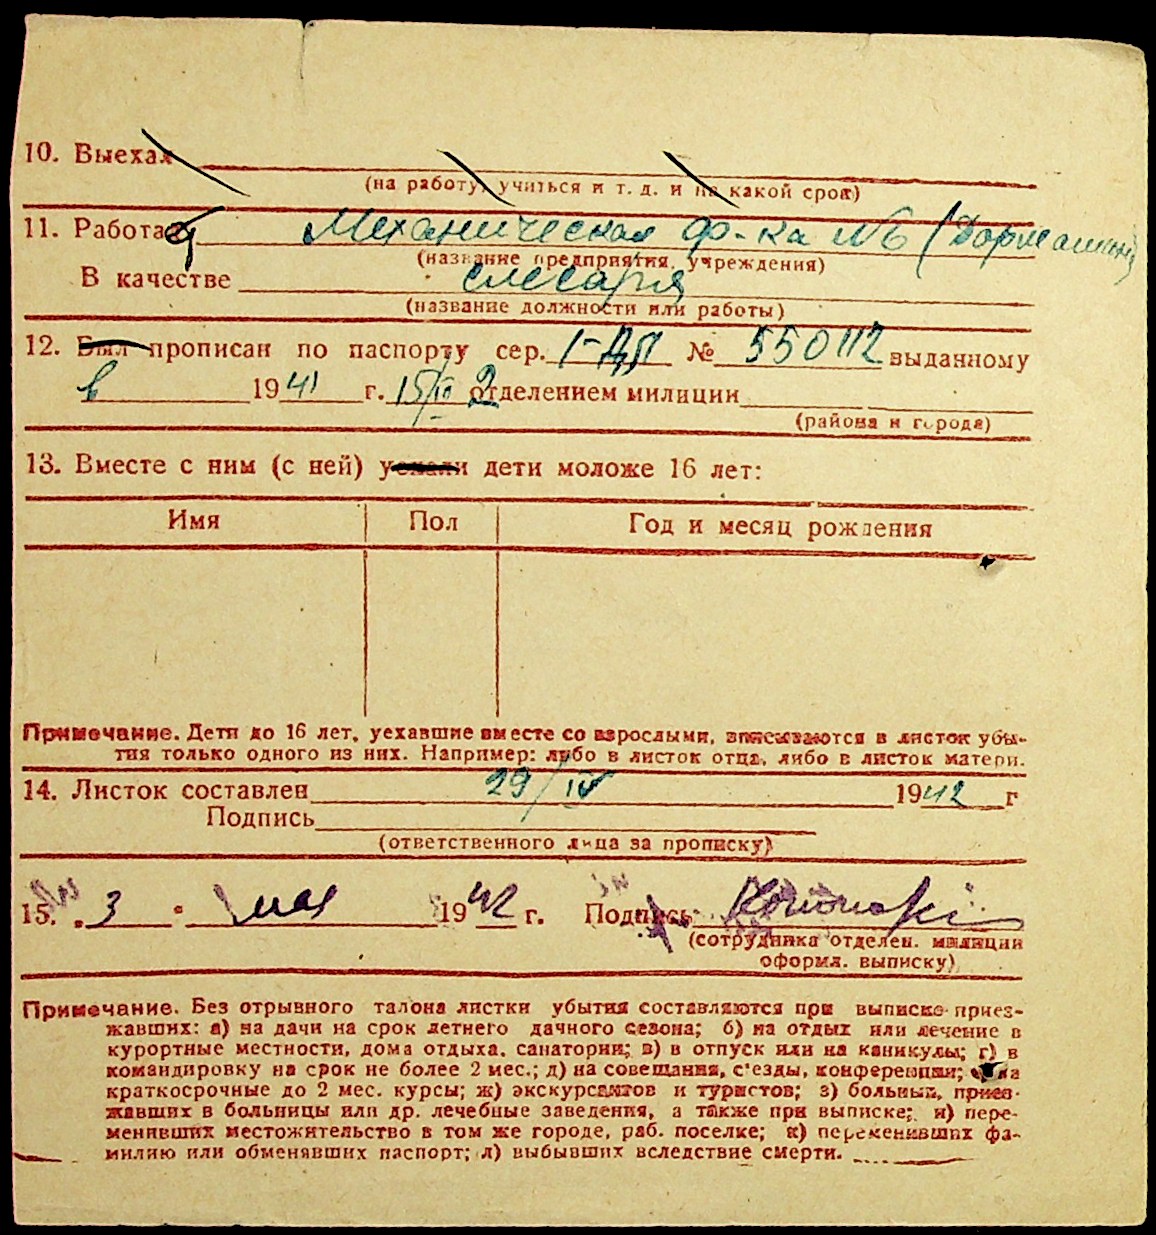 10. Выехал
(на работу, учиться и т. д. и на какой срок)
11. Работает Механическая ф-ка №6 (Дормашин)
(название предприятия, учреждения)
В качестве слесаря
(название должности или работы)
12. Был прописан по паспорту сер. I-ДП № 550112 выданному
в 1941 г. 15/II 2 отделением милиции
(района и города)
13. Вместе с ним (с ней) уехали дети моложе 16 лет:
Имя Пол Год и месяц рождения
Примечание. Дети до 16 лет, уехавшие вместе со взрослыми, вписываются в листок убы-
тия только одного из них. Например: либо в листок отца, либо в листок матери.
14. Листок составлен 29/IV 1942 г
Подпись
(ответственного лица за прописку)
15. „3" мая 1942 г. Подпись
(сотрудника отделен. милиции
оформл. выписку)
Примечание. Без отрывного талона листки убытия составляются при выписке приез-
жавших: а) на дачи на срок летнего дачного сезона; б) на отдых или лечение в
курортные местности, дома отдыха, санатории; в) в отпуск или на каникулы; г) в
командировку на срок не более 2 мес.; д) на совещания, с'езды, конференции; на
краткосрочные до 2 мес. курсы; ж) экскурсантов и туристов; з) больных, приез-
жавших в больницы или др. лечебные заведения, а также при выписке; и) пере-
менивших местожительство в том же городе, раб. поселке; к) переменивших фа-
милию или обменявших паспорт; л) выбывших вследствие смерти.